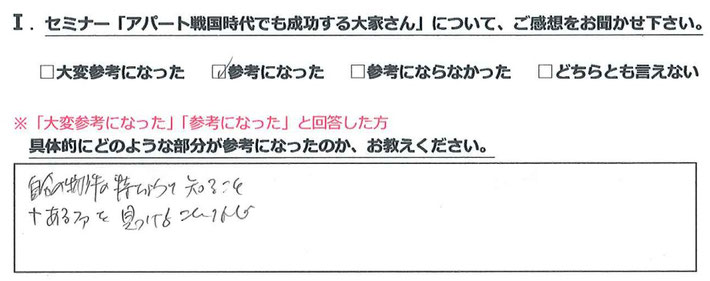 I. セミナー「アパート戦国時代でも成功する大家さん」について、ご感想をお聞かせ下さい。
□大変参考になった ☑参考になった □参考にならなかった □どちらとも言えない
※「大変参考になった」「参考になった」と回答した方
具体的にどのような部分が参考になったのか、お教えください。
自分の物件の特 知ること
ある を見つける